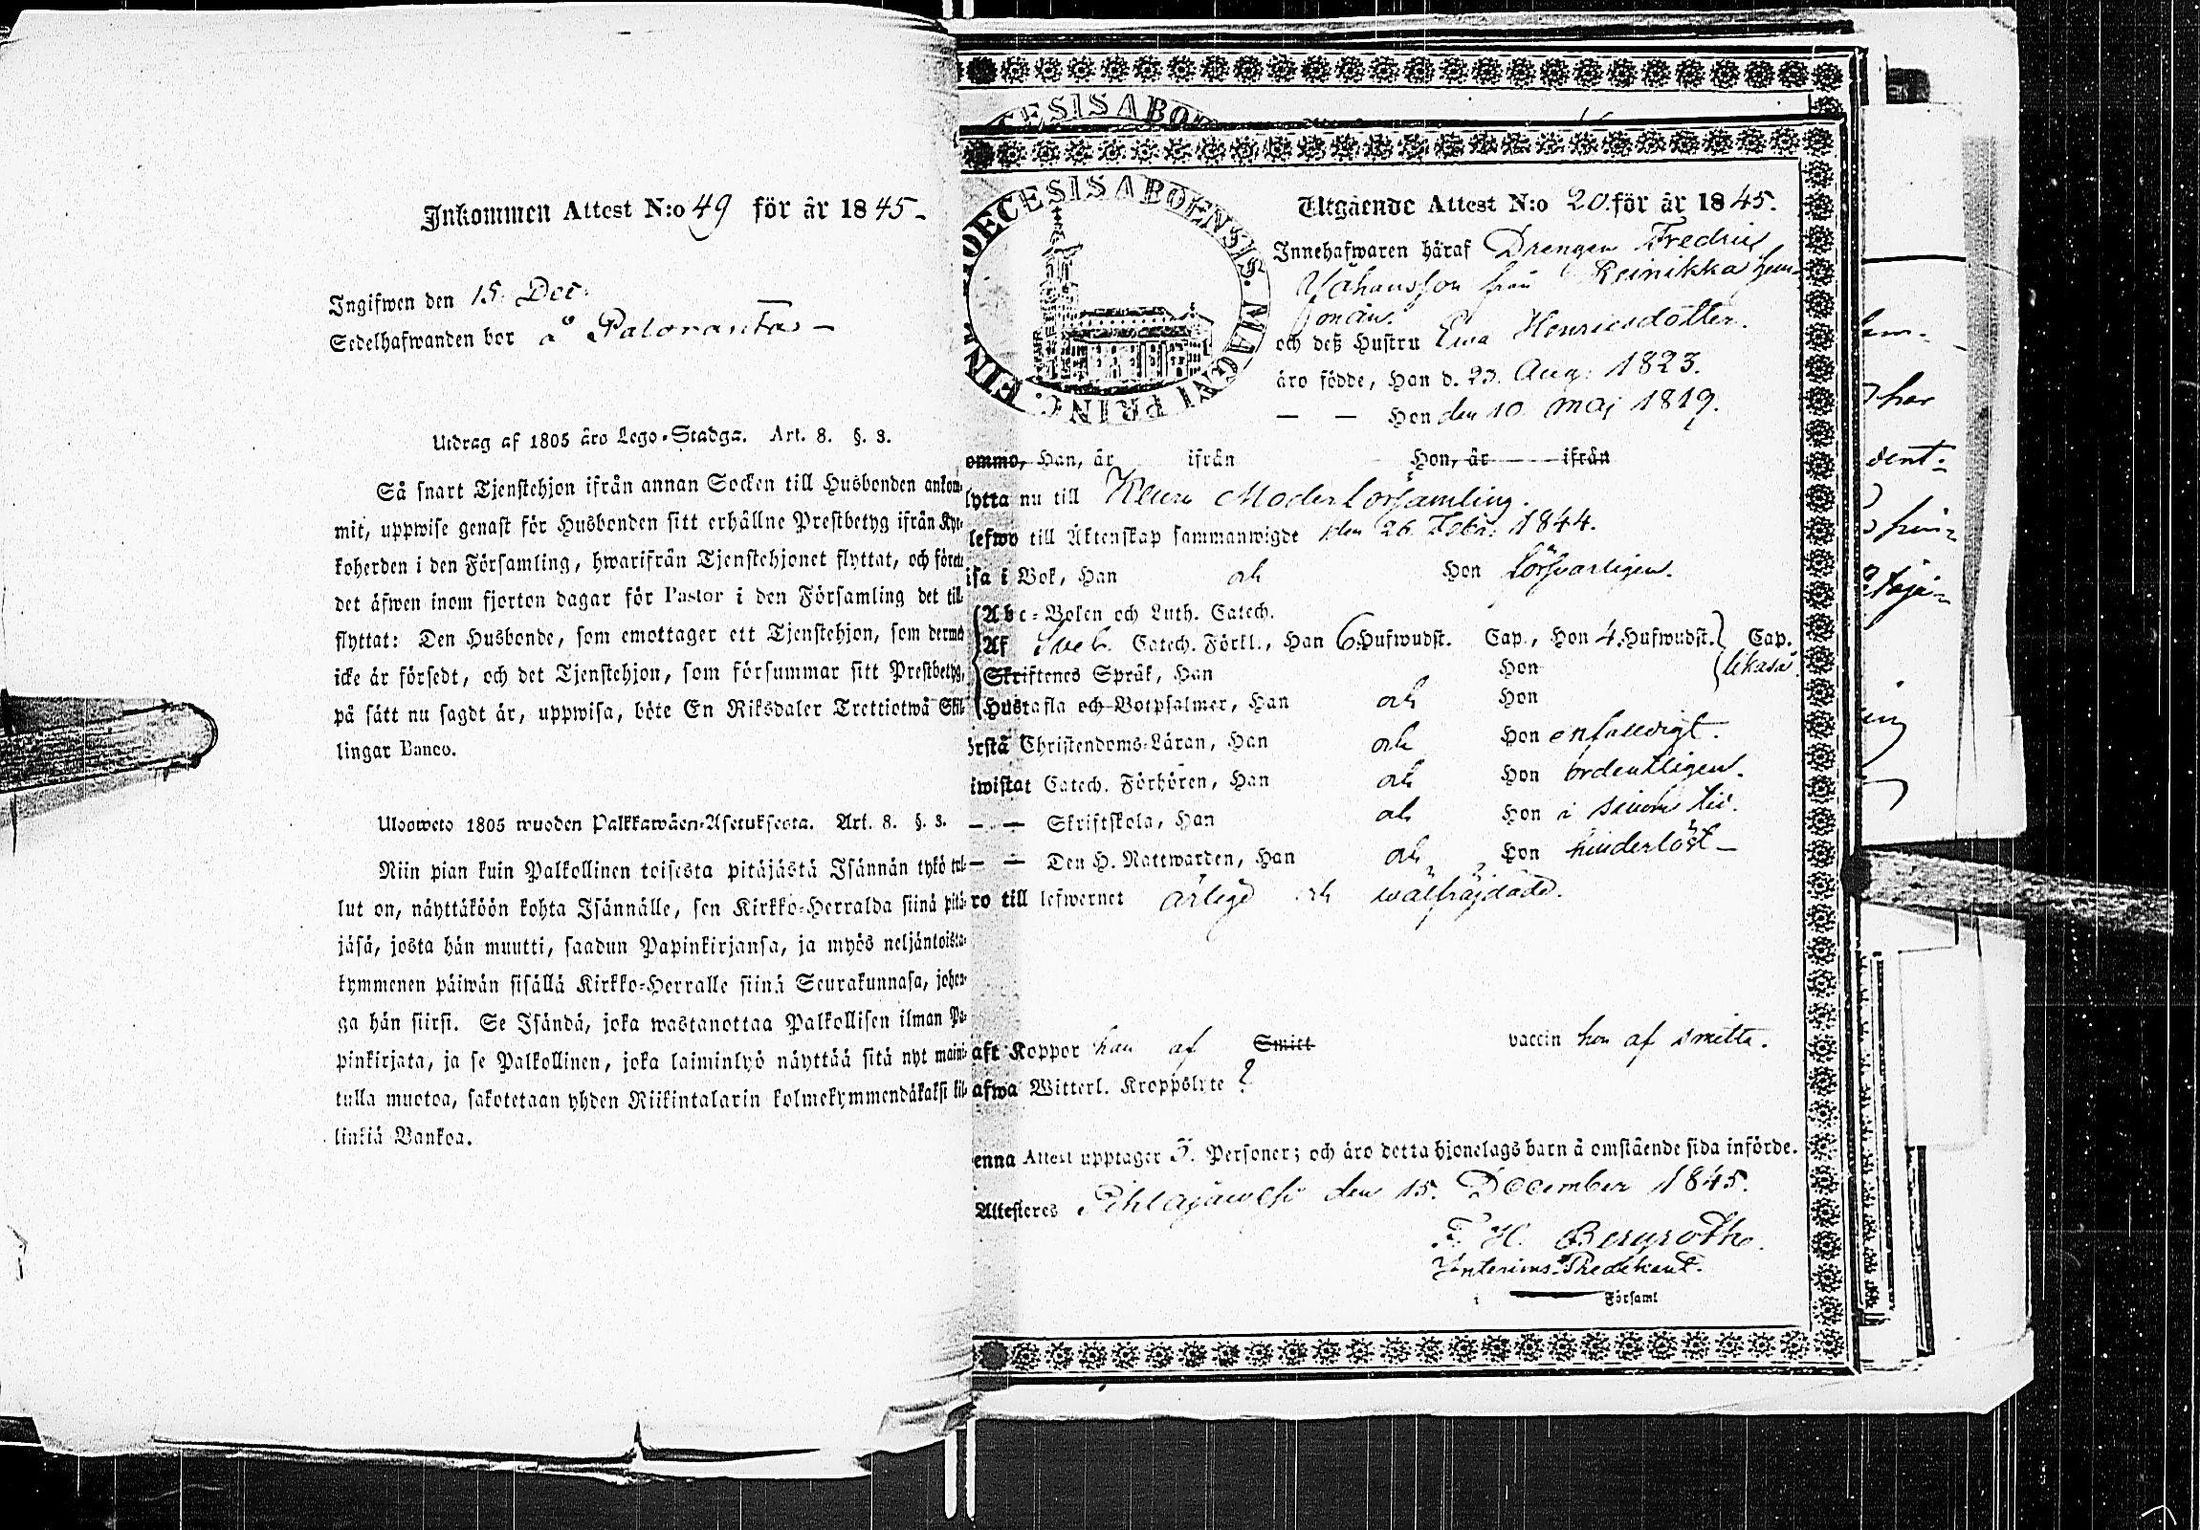 Inkommen Attest N:o 49 för år 1845.
Ingifwen den 15. Dec:
Sedelhafwanden bor å Palorantas
Utdrag af 1805 åro Lego-Stadga. Art. 8. §. 3.
Så snart Tjenstehjon ifrån annan Socken till Husbonden ankom-
mit, uppwise genast för Husbonden sitt erhållne Prestbetyg ifrån Kyr-
koherden i den Församling, hwarifrån Tjenstehjonet flyttat, och förete
det äfwen inom fjorton dagar för Pastor i den Församling det till
flyttat: Den Husbonde, som emottager ett Tjenstehjon, som dermed
icke är försedt, och det Tjenstehjon, som försummar sitt Prestbetyg,
på sätt nu sagdt är, uppwisa, böte En Riksdaler Trettiotwå Skil-
lingar Banco.
Ulosweto 1805 wuoden Palkkawäen-Asetuksesta. Art. 8. §. 3.
Niin pian kuin Palkollinen toisesta pitäjästä Isännän tykö tul-
lut on, näyttäköön kohta Isännälle, sen Kirkko-Herralda siinä pitä-
jäsä, josta hän muutti, saadun Papinkirjansa, ja myös neljäntoista-
kymmenen päiwän sisällä Kirkko-Herralle siinä Seurakunnasa, johon-
ga hän siirsi. Se Isändä, joka wastanottaa Palkollisen ilman Pa-
pinkirjata, ja se Palkollinen, joka laiminlyö näyttää sitä nyt maini-
tulla muotoa, sakotetaan yhden Riikintalarin kolmekymmendäkaksi kil-
linkiä Bankoa.
DIOECESIS ABOENSIS. MAGNI PRINC. FIN
Utgående Attest N:o 20. för år 1845.
Innehafwaren häraf Drengen Fredric
Johansson från Reinikka hem-
och deß Hustru Ewa Henricsdotter.
äro födde, Han d. 23. Aug: 1823.
— — Hon den 10 Maj 1819.
ommo, Han, är ifrån Hon, är ifrån
lytta nu till Keuru Moderförsamling.
lefwo till Äktenskap sammanwigde den 26. Febr: 1844.
isa i Bok, Han och Hon försvarligen.
Abc-Boken och Luth. Catech.
Af Sveb. Catech. Förkl., Han 6. Hufwudst. Cap., Hon 4. Hufwudst. Cap.
Skriftenes Språk, Han Hon likaså.
Hustafla och Botpsalmer, Han och Hon
örstå Christendoms-Läran, Han och Hon enfaldigt.
iwistat Catech. Förhören, Han och Hon ordentligen.
— — Skriftskola, Han och Hon i sinom tid.
— — Den H. Nattwarden, Han och Hon hinderlöst
ro till lefwernet ärlige och wälfräjdade.
aft Koppor han af Smitt vaccin hon af smitta.
afwa Witterl. Kroppslyte ?
enna Attest upptager 3. Personer; och äro detta hjonelags barn å omstående sida införde.
Attesteres Pihlajawesi den 15. December 1845.
F. H. Bergroth.
Interims-Predikant.
i Församl